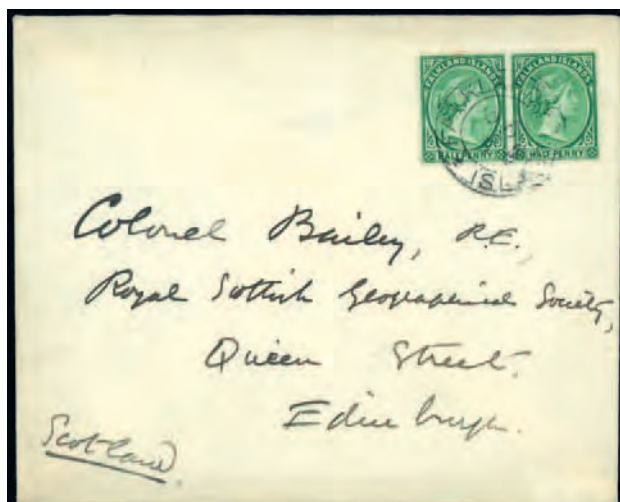 FALKLAND ISLANDS FALKLAND ISLANDS
HALF PENNY HALF PENNY
Colonel Bailey, R.E.,
Royal Scottish Geographical Society,
Queen Street.
Edinburgh.
Scotland.